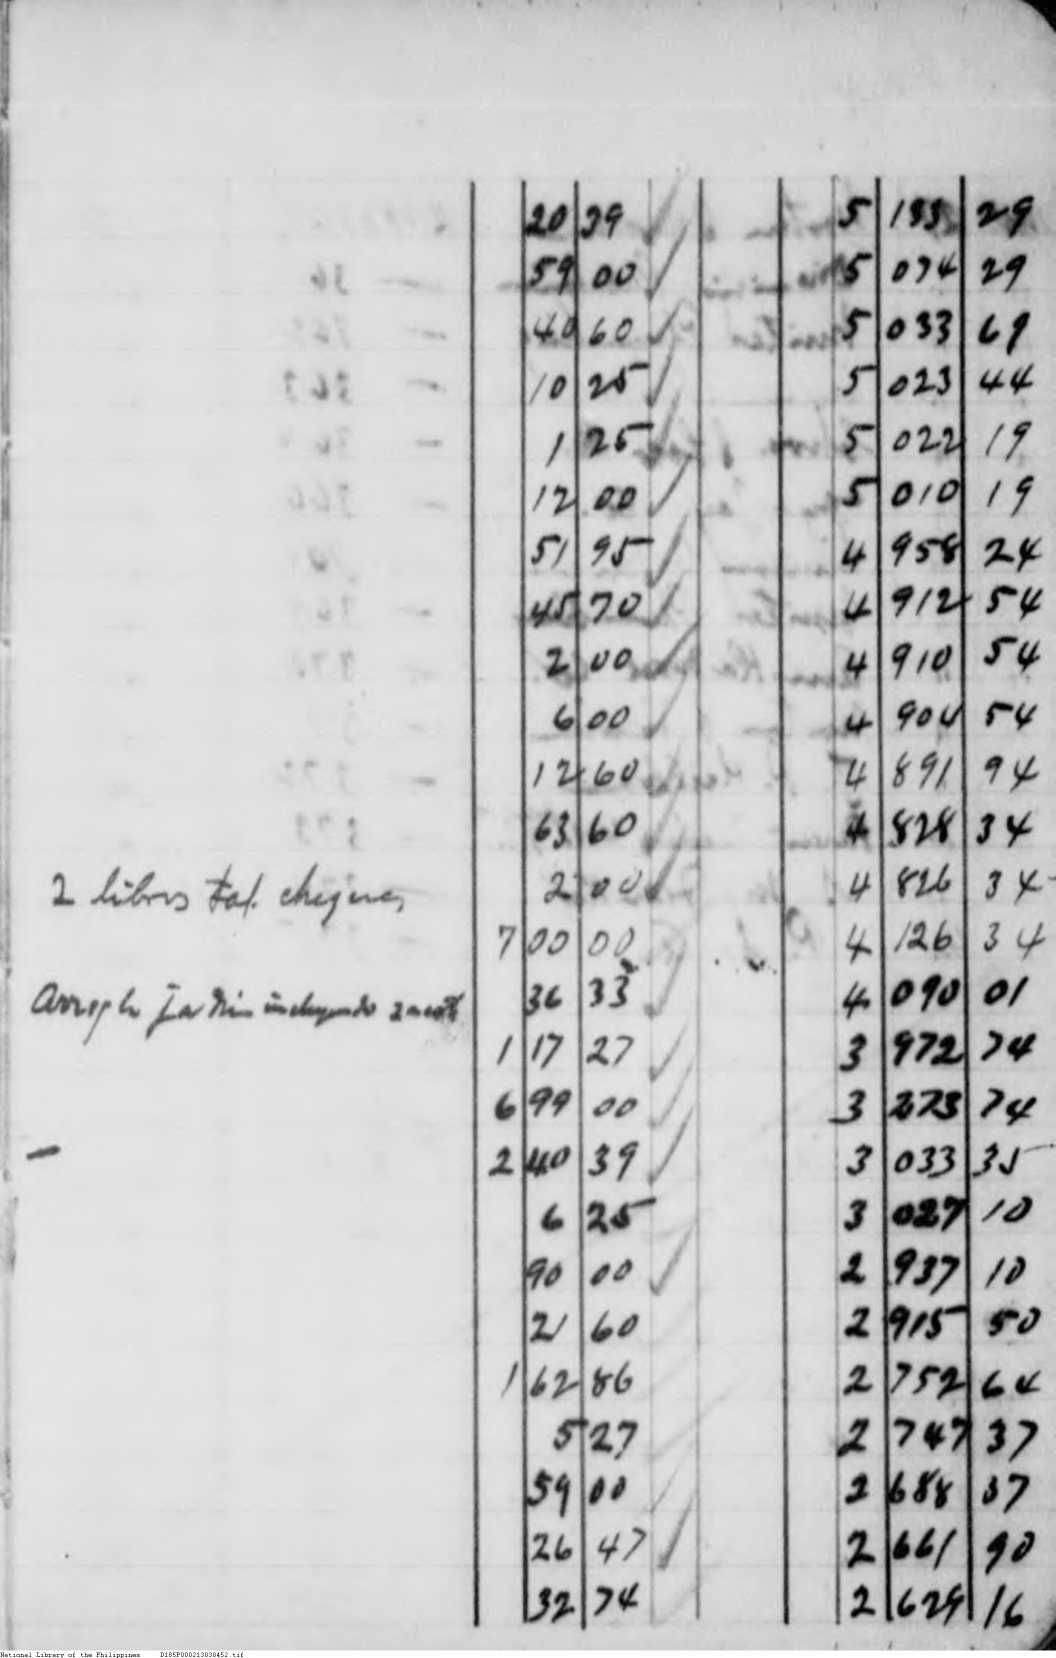 20 39 5 133 29
59 00 5 074 29
40 60 5 033 69
10 25 5 023 44
1 25 5 022 19
12 00 5 010 19
51 95 4 958 24
45 70 4 912 54
2 00 4 910 54
6 00 4 904 54
12 60 4 891 94
63 60 4 828 34
2 libros tal. cheques 2 00 4 826 34
7 00 00 4 126 34
incluyendo 36 33 4 090 01
1 17 27 3 972 74
6 99 00 3 273 74
— 2 40 39 3 033 35
6 25 3 027 10
90 00 2 937 10
21 60 2 915 50
1 62 86 2 752 64
5 27 2 747 37
59 00 2 688 37
26 47 2 661 90
32 74 2 629 16
National Library of the Philippines D185P000213830452.tif